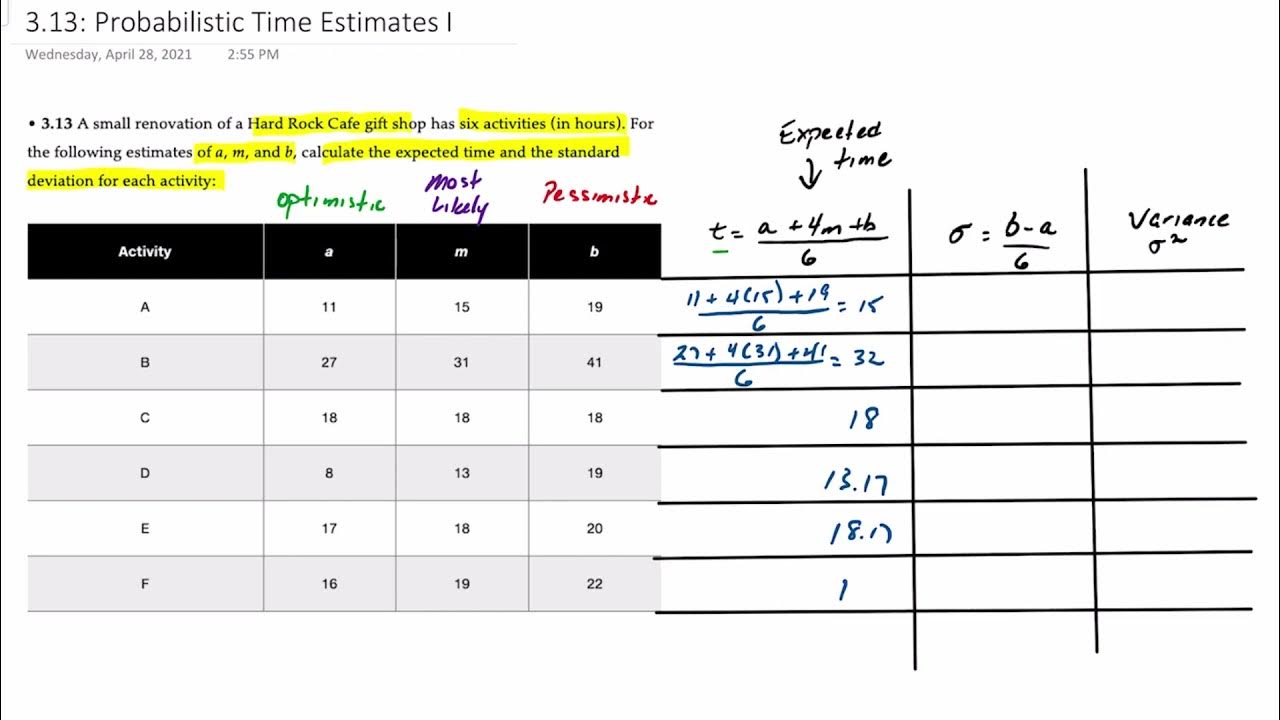 3.13: Probabilistic Time Estimates I
Wednesday, April 28, 2021 2:55 PM
• 3.13 A small renovation of a Hard Rock Cafe gift shop has six activities (in hours). For
the following estimates of a, m, and b, calculate the expected time and the standard
deviation for each activity:
optimistic
most
likely
Pessimistic
Expected
time
Activity a m b
t = a + 4m + b / 6
σ = b - a / 6
Variance
σ²
A 11 15 19 11 + 4(15) + 19 / 6 = 15
B 27 31 41 27 + 4(31) + 41 / 6 = 32
C 18 18 18 18
D 8 13 19 13.17
E 17 18 20 18.17
F 16 19 22 1